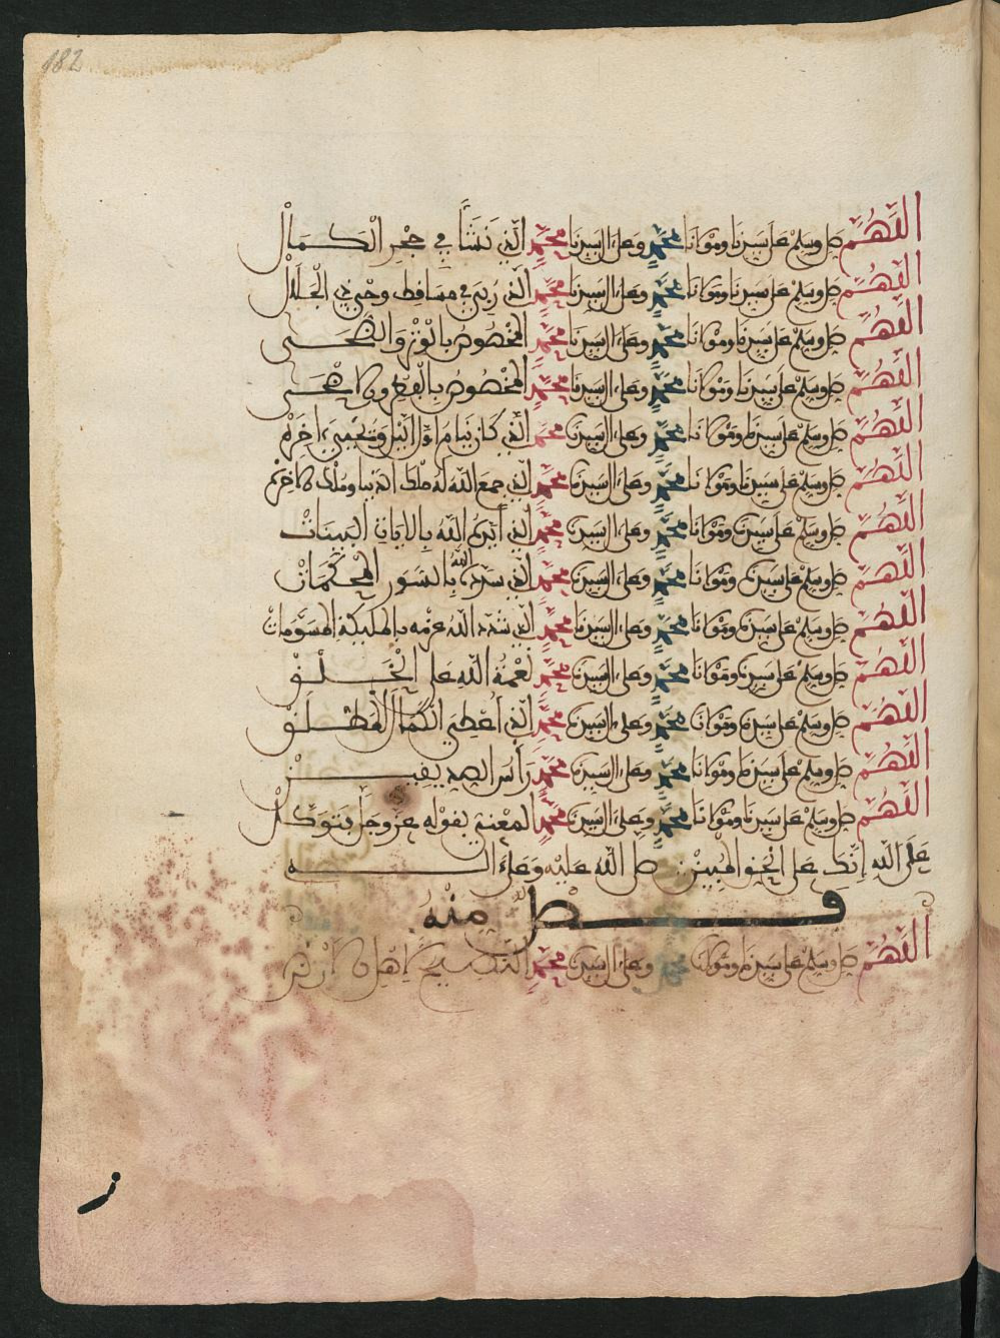 182
اللهم صل وسلم على سيدنا ومولانا محمد وعلى ءال سيدنا محمد الذي نشأ في حجر الكمال
اللهم صل وسلم على سيدنا ومولانا محمد وعلى ءال سيدنا محمد الذي ربي في
اللهم صل وسلم على سيدنا ومولانا محمد وعلى ءال سيدنا محمد المخصوص بالوتر والضحى
اللهم صل وسلم على سيدنا ومولانا محمد وعلى ءال سيدنا محمد المخصوص
اللهم صل وسلم على سيدنا ومولانا محمد وعلى ءال سيدنا محمد الذي كان
اللهم صل وسلم على سيدنا ومولانا محمد وعلى ءال سيدنا محمد الذي جمع الله له ملك الدنيا وملك الاخرة
اللهم صل وسلم على سيدنا ومولانا محمد وعلى ءال سيدنا محمد الذي أيده الله بالايات البينات
اللهم صل وسلم على سيدنا ومولانا محمد وعلى ءال سيدنا محمد الذي الله بالسور المحكمات
اللهم صل وسلم على سيدنا ومولانا محمد وعلى ءال سيدنا محمد الذي شدد الله عزمه بالمليكة المسومات
اللهم صل وسلم على سيدنا ومولانا محمد وعلى ءال سيدنا محمد نعمة الله على الخلق
اللهم صل وسلم على سيدنا ومولانا محمد وعلى ءال سيدنا محمد الذي أعطي الكمال المطلق
اللهم صل وسلم على سيدنا ومولانا محمد وعلى ءال سيدنا محمد رأس الصديقين
اللهم صل وسلم على سيدنا ومولانا محمد وعلى ءال سيدنا محمد المعني بقوله عز وجل فتوكل
على الله إنك على الحق المبين صلى الله عليه وعلى اله
فصل منه
اللهم صل وسلم على سيدنا ومولانا محمد وعلى ءال سيدنا محمد